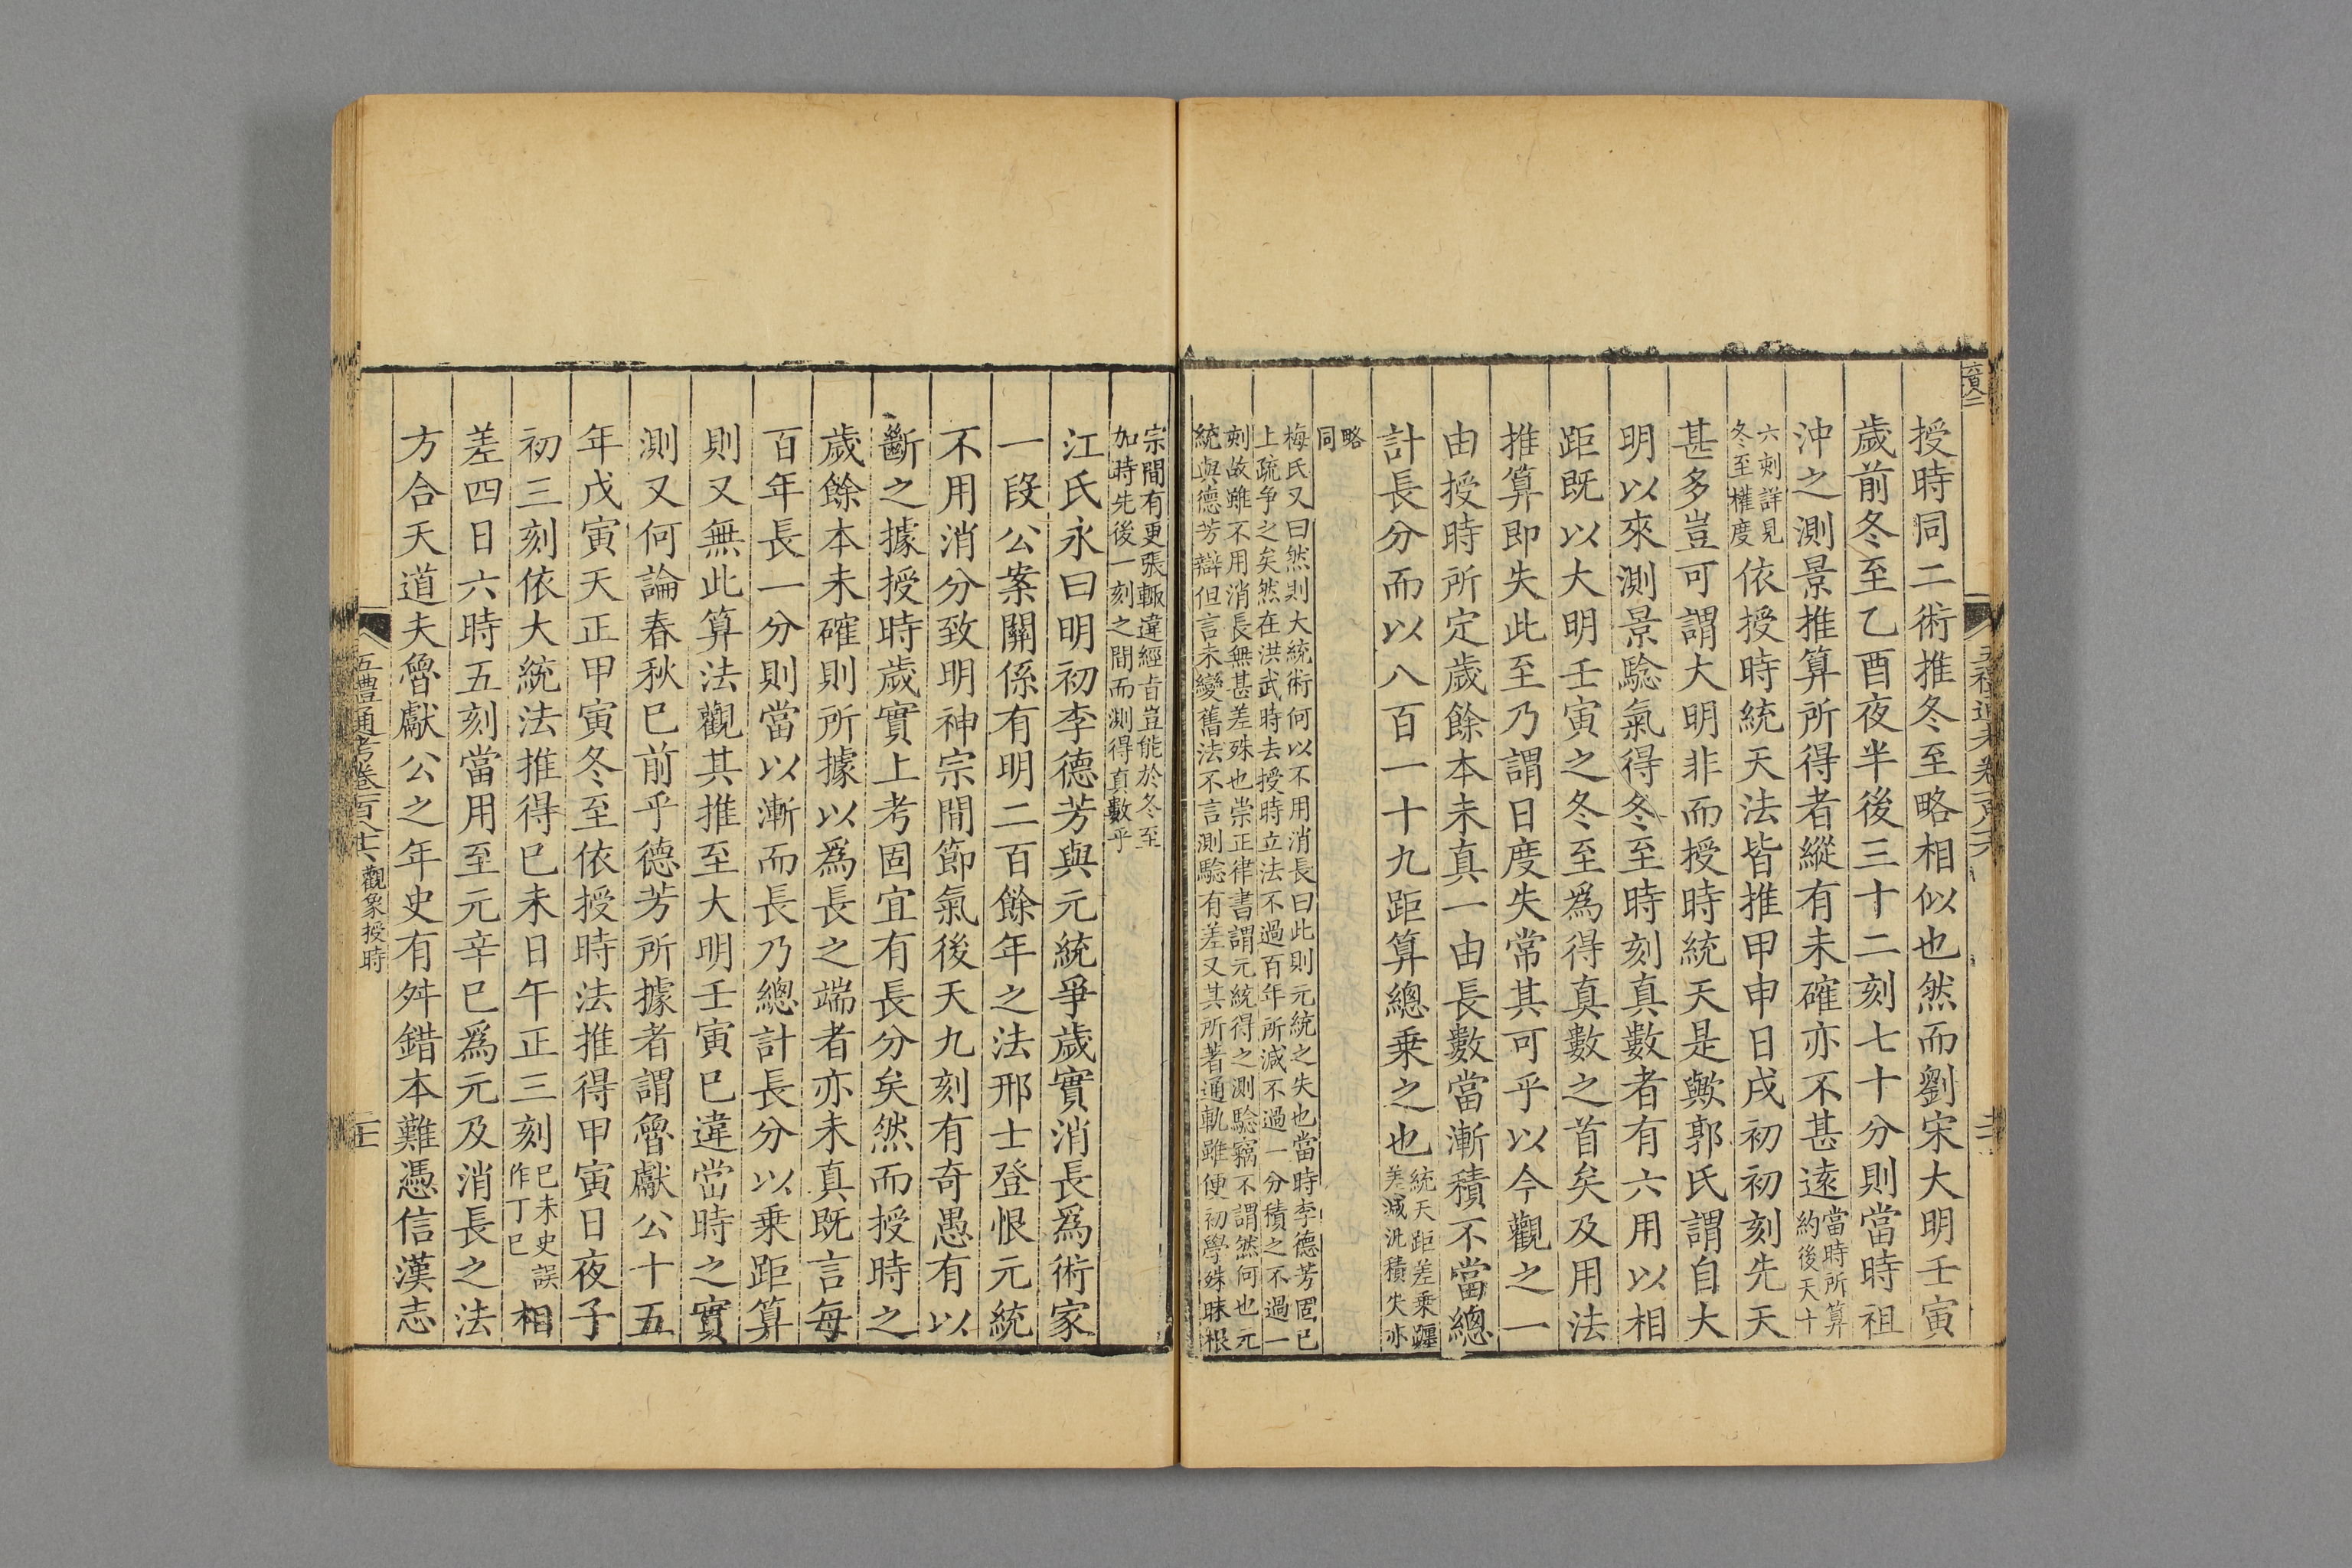 授時同二術推冬至略相似也然而劉宋大明壬寅
歲前冬至乙酉夜半後三十二刻七十分則當時祖
沖之測景推算所得者縱有未確亦不甚遠當時所算
約後天十
六刻詳見
冬至權度依授時統天法皆推甲申日戌初初刻先天
甚多豈可謂大明非而授時統天是歟郭氏謂自大
明以來測景驗氣得冬至時刻真數者有六用以相
距既以大明壬寅之冬至爲得真數之首矣及用法
推算即失此至乃謂日度失常其可乎以今觀之一
由授時所定歲餘本未真一由長數當漸積不當總
計長分而以八百一十九距算總乗之也統天距差乗躔
差減汎積失亦
略
同
梅氏又曰然則大統術何以不用消長曰此則元統之失也當時李德芳固已
上疏争之矣然在洪武時去授時立法不過百年所減不過一分積之不過一
刻故雖不用消長無甚差殊也崇正律書謂元統得之測驗竊不謂然何也元
統與德芳辯但言未變舊法不言測驗有差又其所著通軌雖便初學殊昧根
宗間有更張輒違經㫖豈能於冬至
加時先後一刻之間而測得真數乎
江氏永曰明初李德芳與元統爭歲實消長爲術家
一段公案關係有明二百餘年之法邢士登恨元統
不用消分致明神宗間節氣後天九刻有奇愚有以
斷之據授時歲實上考固宜有長分矣然而授時之
歲餘本未確則所據以爲長之端者亦未真既言每
百年長一分則當以漸而長乃總計長分以乗距算
則又無此算法觀其推至大明壬寅已違當時之實
測又何論春秋已前乎德芳所據者謂魯獻公十五
年戊寅天正甲寅冬至依授時法推得甲寅日夜子
初三刻依大統法推得己未日午正三刻己未史誤
作丁巳相
差四日六時五刻當用至元辛巳爲元及消長之法
方合天道夫魯獻公之年史有舛錯本難憑信漢志
五禮通考卷一百八十六 觀象授時